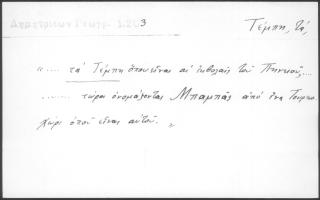 Δημητριέων Γεωγρ. 1.203
Τέμπη, τά,
«.... τα Τέμπη ὅπου εἶναι αἱ ἐκβολαὶς τοῦ Πηνειοῦ,....
....... τώρα ὀνομάζονται Μπαμπᾶς ἀπὸ ἕνα Τούρκικο
χωρι ὁποῦ εἶναι αὐτοῦ. »